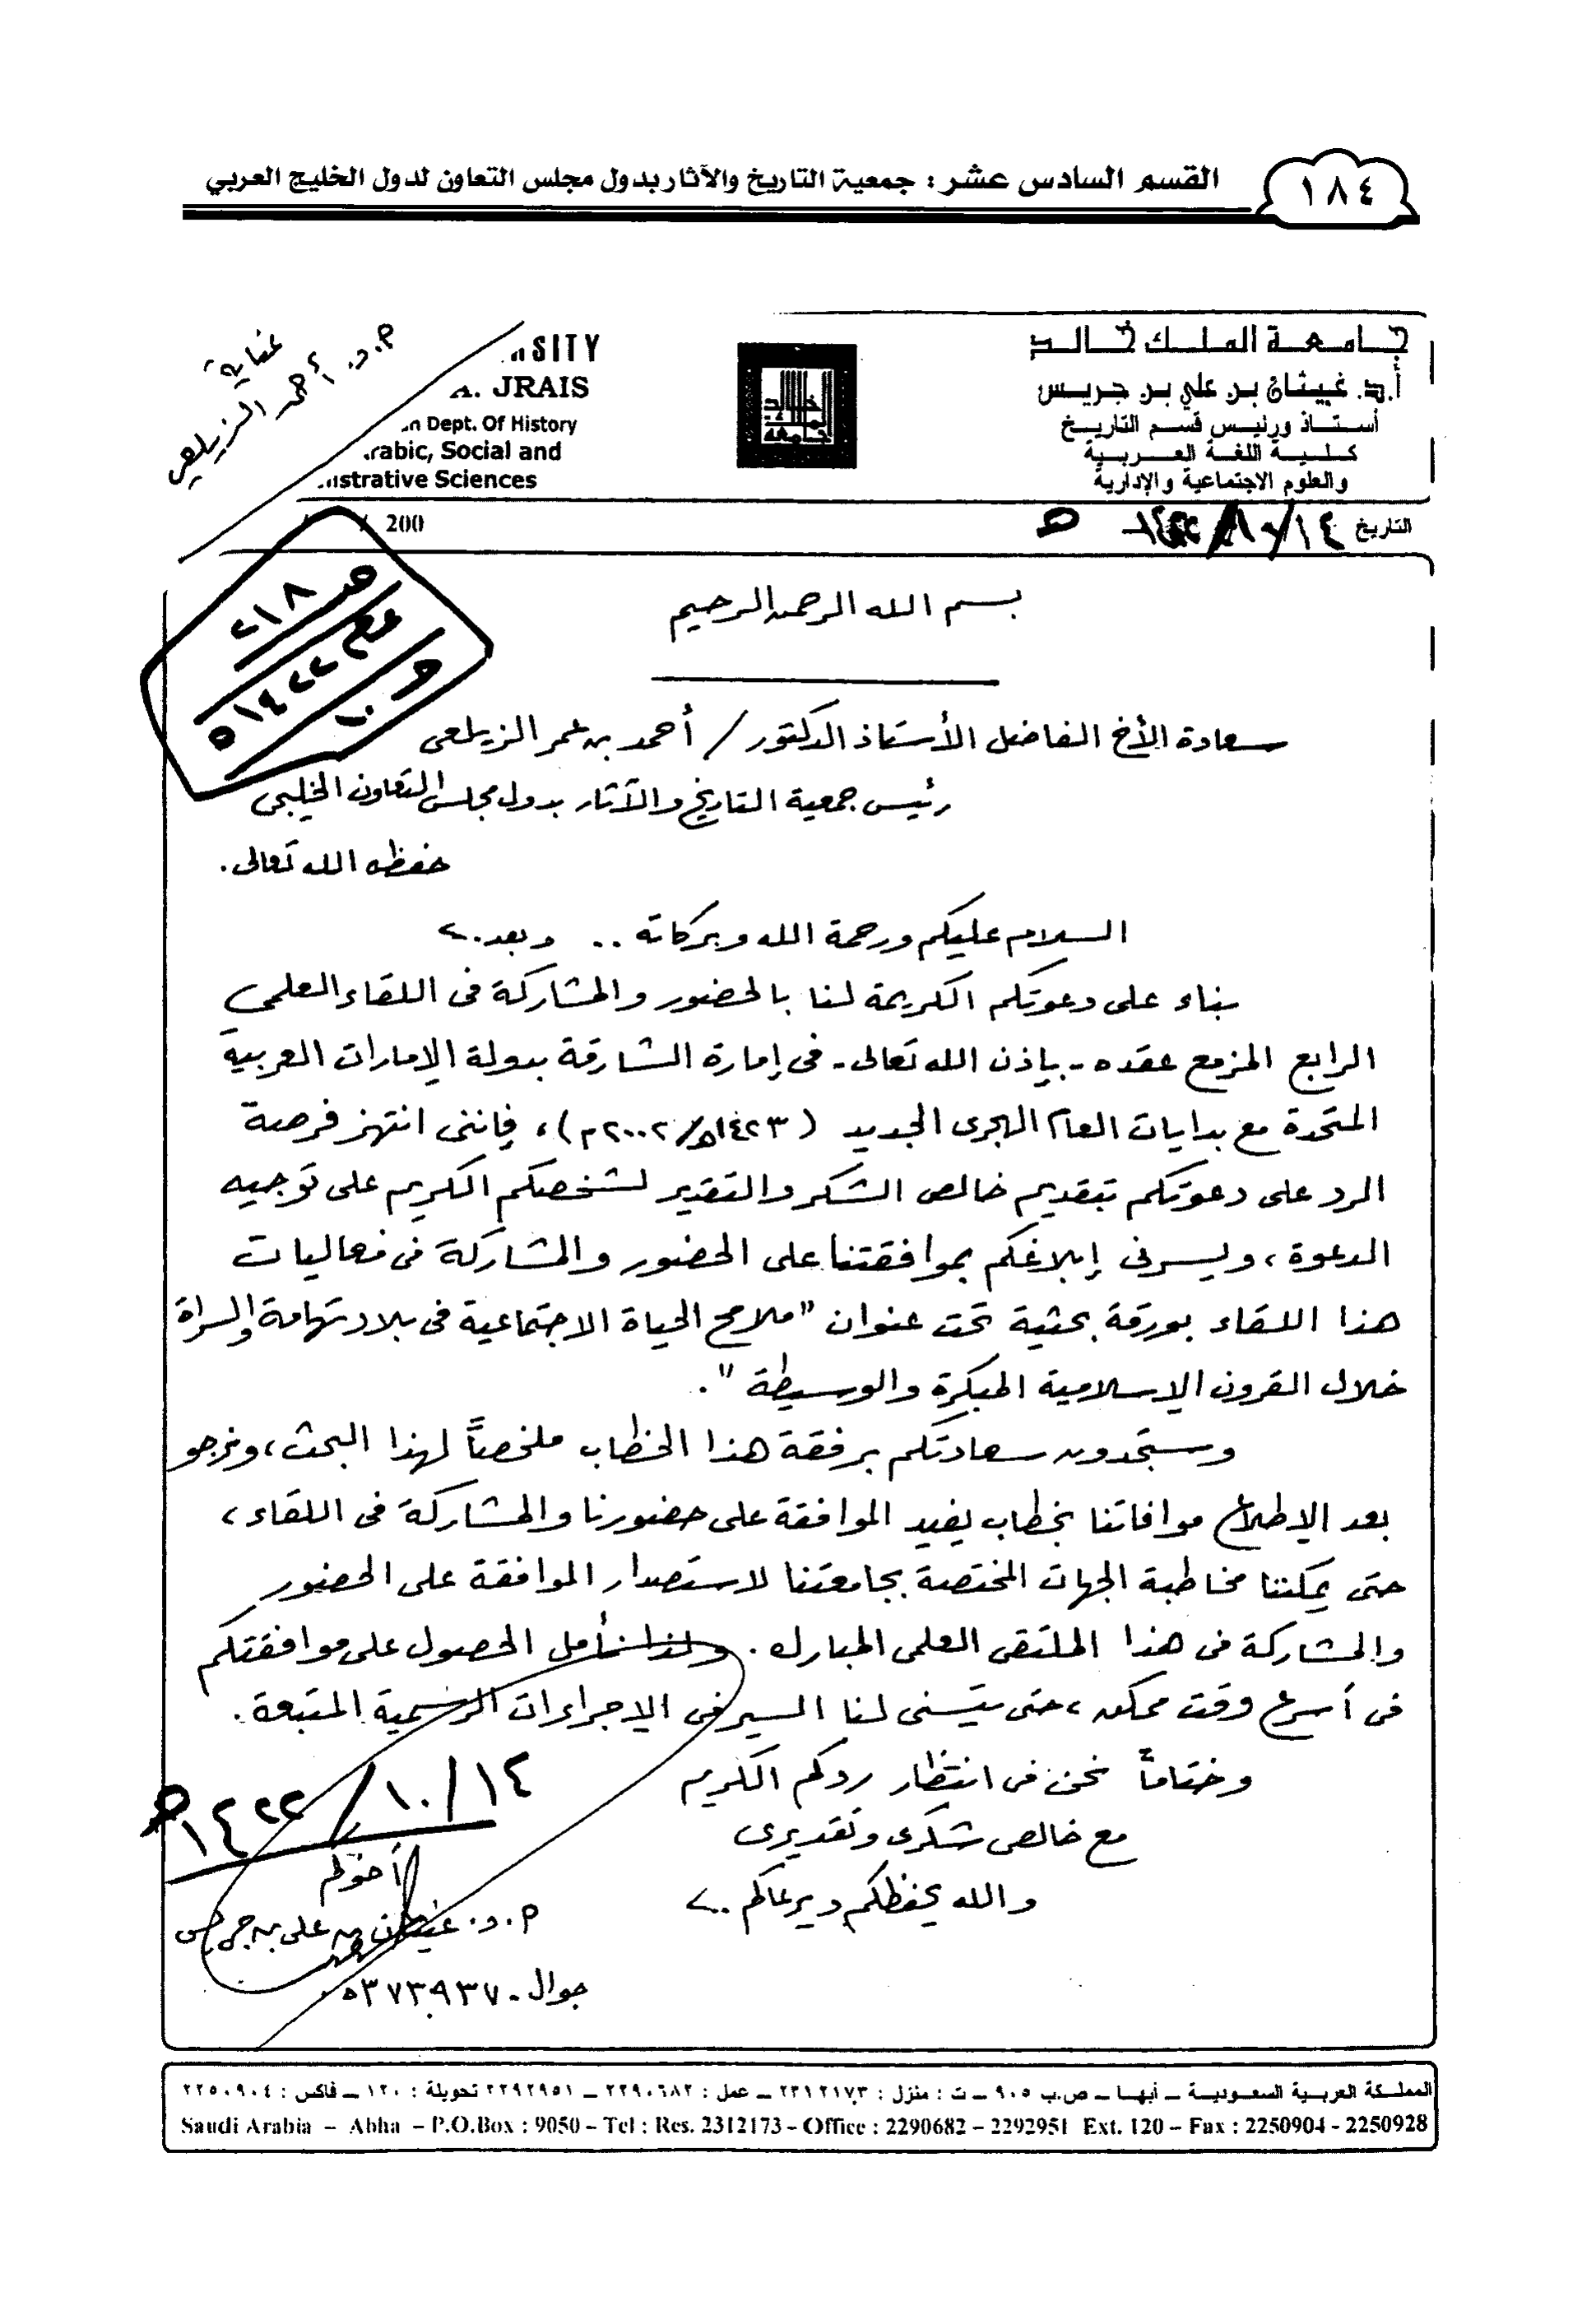 ١٨٤
القسم السادس عشر : جمعية التاريخ والآثار بدول مجلس التعاون لدول الخليج العربي
جامعة الملك خالد
أ.د. غيثان بن علي بن جريس
أستاذ ورئيس قسم التاريخ
كلية اللغة العربية
والعلوم الاجتماعية والإدارية
SITY
A. JRAIS
Dept. Of History
rabic, Social and
istrative Sciences
عناية
أ.د. أحمد الزيلعي
التاريخ ١٤/
هـ
/ 200
ص ٢١٨
١٤٢٢هـ
بسم الله الرحمن الرحيم
سعادة الأخ الفاضل الأستاذ الدكتور / أحمد بن عمر الزيلعي
رئيس جمعية التاريخ والآثار بدول مجلس التعاون الخليجي
حفظه الله تعالى.
السلام عليكم ورحمة الله وبركاته .. وبعد..
بناء على دعوتكم الكريمة لنا بالحضور والمشاركة في اللقاء العلمي
الرابع المزمع عقده - بإذن الله تعالى - في إمارة الشارقة بدولة الإمارات العربية
المتحدة مع بدايات العام الهجري الجديد (١٤٢٣هـ/٢٠٠٢م)، فإنني انتهز فرصة
الرد على دعوتكم بتقديم خالص الشكر والتقدير لشخصكم الكريم على توجيه
الدعوة، ويسرني إبلاغكم بموافقتنا على الحضور والمشاركة في فعاليات
هذا اللقاء بورقة بحثية تحت عنوان "ملامح الحياة الاجتماعية في بلاد تهامة والسراة
خلال القرون الإسلامية المبكرة والوسيطة".
وستجدون سعادتكم برفقة هذا الخطاب ملخصاً لهذا البحث، ونرجو
بعد الاطلاع موافاتنا بخطاب يفيد الموافقة على حضورنا والمشاركة في اللقاء،
حتى يمكننا مخاطبة الجهات المختصة بجامعتنا لاستصدار الموافقة على الحضور
والمشاركة في هذا الملتقى العلمي المبارك. ولذا نأمل الحصول على موافقتكم
في أسرع وقت ممكن، حتى يتسنى لنا السير في الإجراءات الرسمية المتبعة.
وختاماً نحن في انتظار ردكم الكريم
مع خالص شكري وتقديري
والله يحفظكم ويرعاكم ..
١٤/١٠/١٤٢٢هـ
أخوكم
أ.د. غيثان بن علي بن جريس
جوال ٠٥٣٧٣٩٣٧٠
المملكة العربية السعودية – أبها – ص.ب ٩٠٥٠ – ت : منزل : ٢٣١٢١٧٣ – عمل : ٢٢٩٠٦٨٢ – ٢٢٩٢٩٥١ تحويلة : ١٢٠ – فاكس : ٢٢٥٠٩٠٤
Saudi Arabia – Abha – P.O.Box : 9050 – Tel : Res. 2312173 – Office : 2290682 – 2292951 Ext. 120 – Fax : 2250904 - 2250928